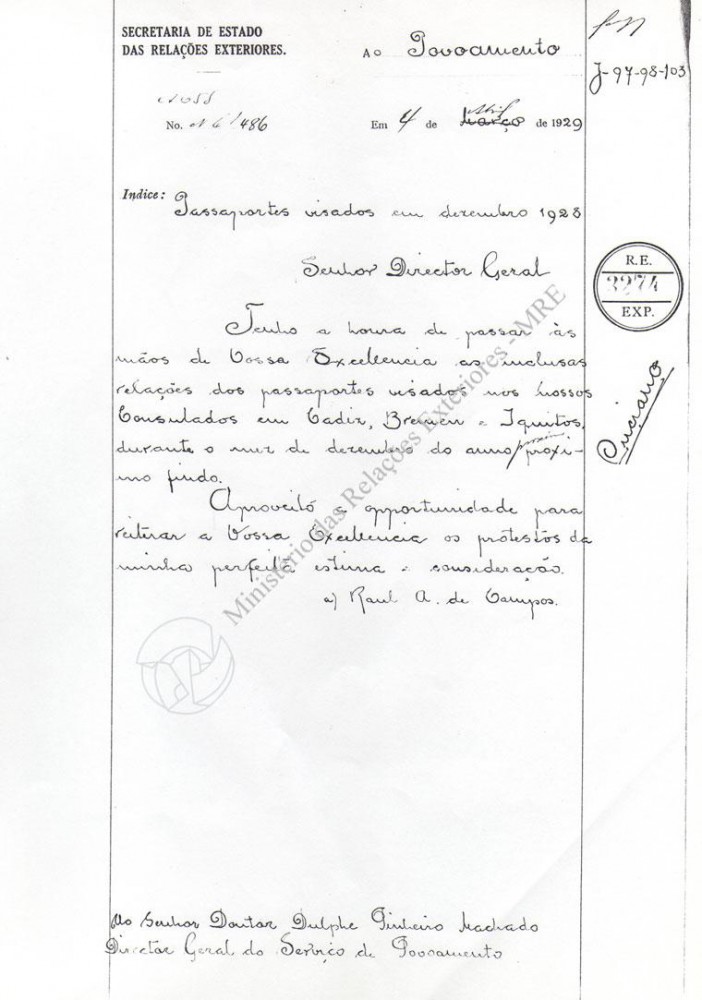 SECRETARIA DE ESTADO
DAS RELAÇÕES EXTERIORES.
AO Povoamento
J-97-98-103
No. /486
Em 4 de Março Abril de 1929
Indice: Passaportes visados em dezembro 1928
Senhor Director Geral
R.E.
3274
EXP.
Tenho a honra de passar às
mãos de Vossa Excellencia as inclusas
relações dos passaportes visados nos nossos
Consulados em Cadiz, Bremen e Iquitos,
durante o mez de dezembro do anno proxi-
mo findo.
Aproveito a opportunidade para
reiterar a Vossa Excellencia os protestos da
minha perfeita estima e consideração.
a) Raul A. de Campos.
Ministério das Relações Exteriores - MRE
Ao Senhor Doutor Dulphe Pinheiro Machado
Director Geral do Serviço de Povoamento